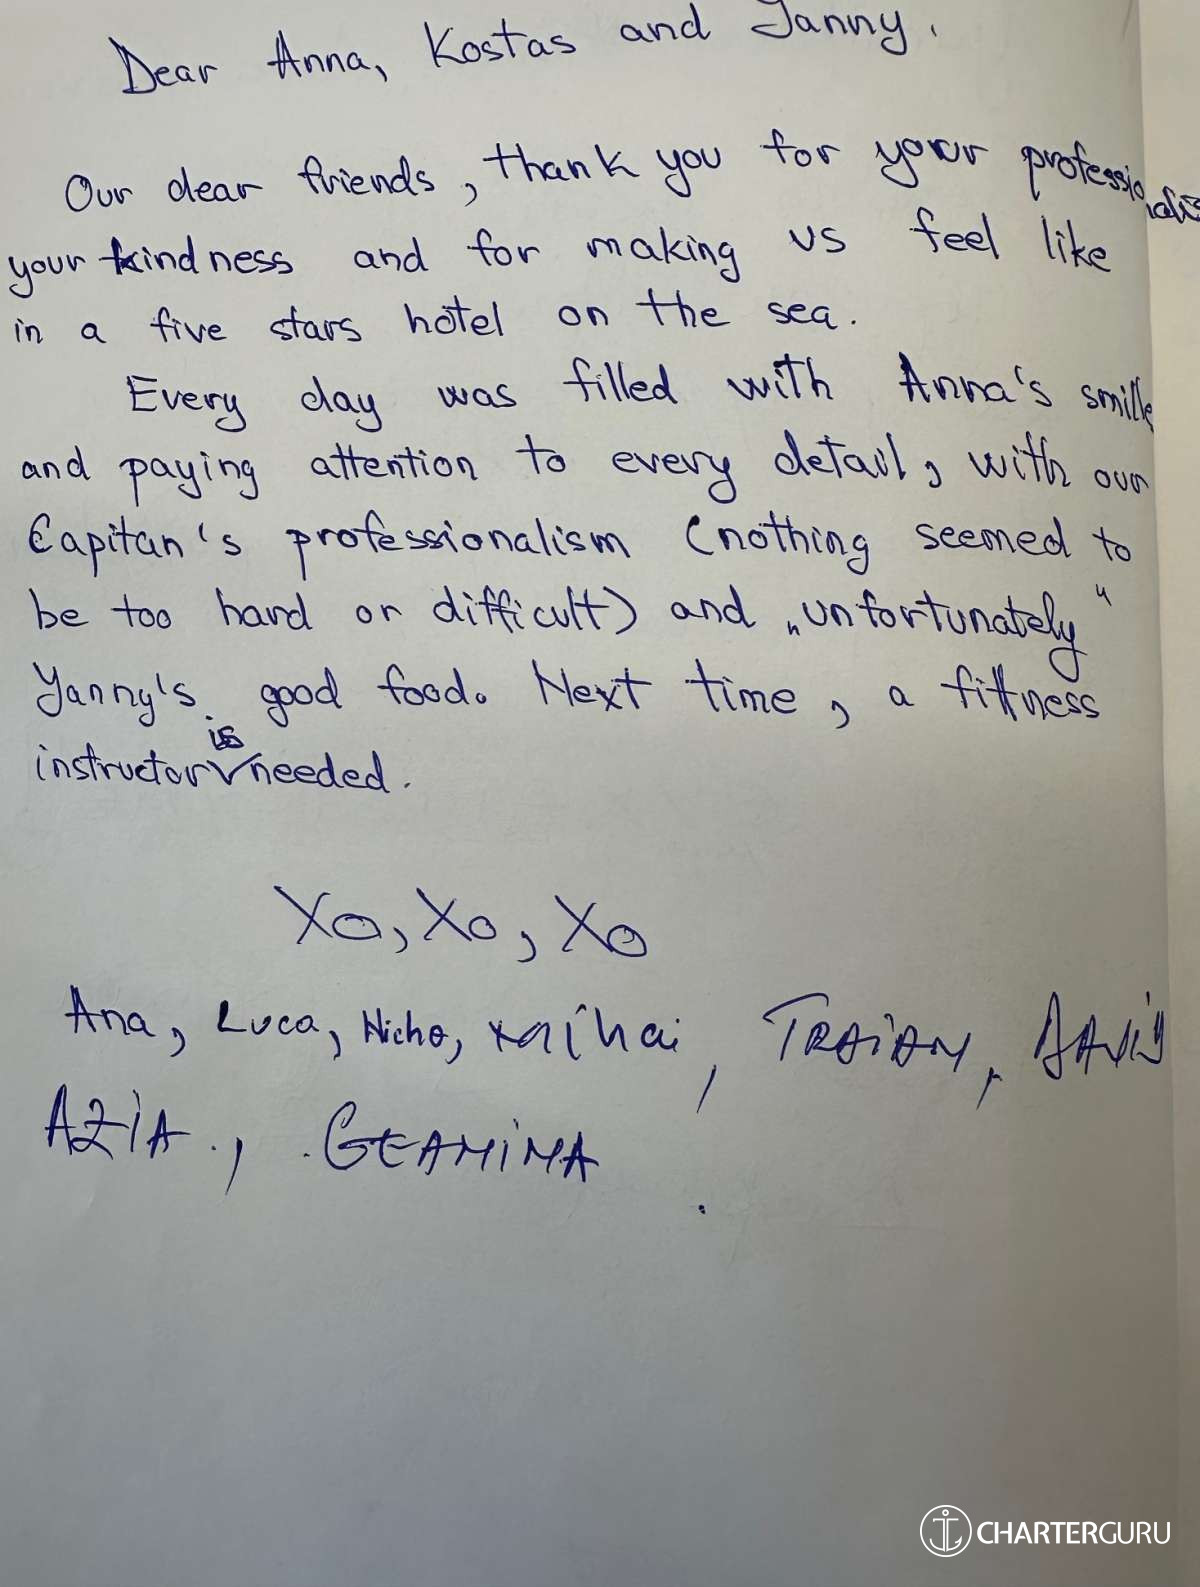 Dear Anna, Kostas and Yanny.
Our dear friends, thank you for your professionalis
your kindness and for making us feel like
in a five stars hotel on the sea.
Every day was filled with Anna's smille
and paying attention to every detail, with our
Capitan's professionalism (nothing seemed to
be too hard or difficult) and „unfortunately"
Yanny's good food. Next time, a fittness
instructor is needed.
XO, XO, XO
Ana, Luca, Nicho, Mihai, TRAIAN,
AZIA., GEAMINA
CHARTERGURU